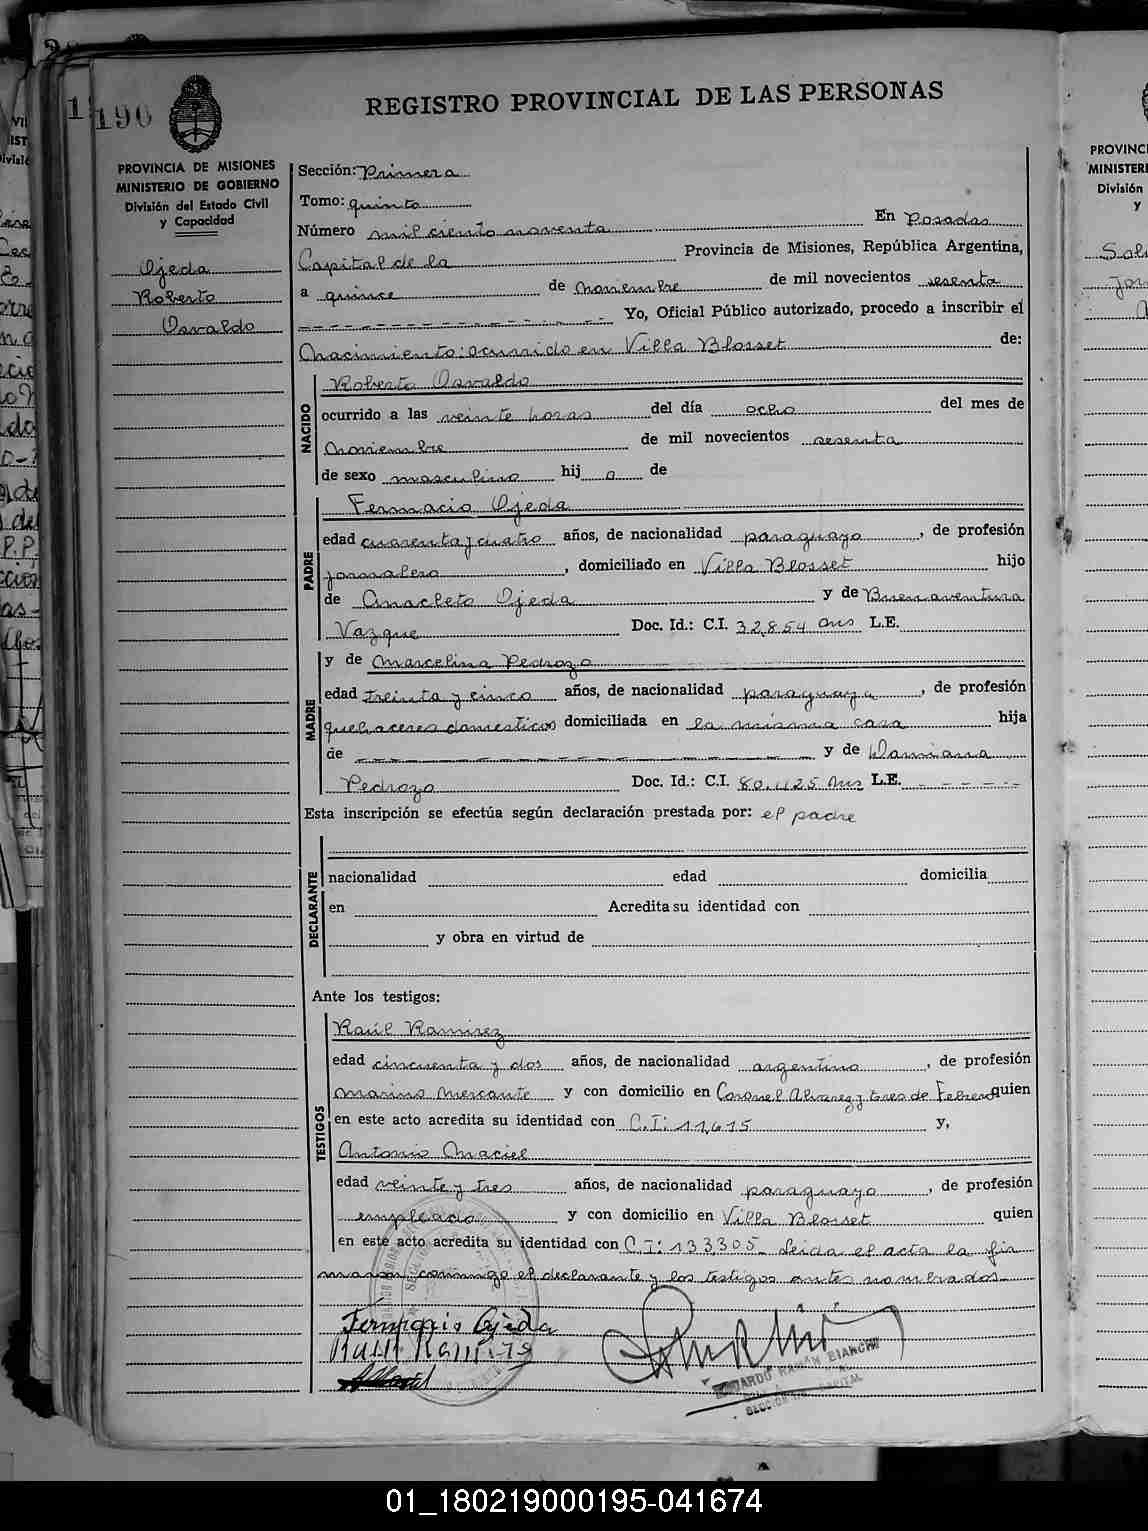 1190
REGISTRO PROVINCIAL DE LAS PERSONAS
PROVINCIA DE MISIONES
MINISTERIO DE GOBIERNO
División del Estado Civil
y Capacidad
Ojeda
Roberto
Osvaldo
Sección: Primera
Tomo: quinto
Número mil ciento noventa En Posadas
Capital de la Provincia de Misiones, República Argentina,
a quince de noviembre de mil novecientos sesenta
Yo, Oficial Público autorizado, procedo a inscribir el
Nacimiento: ocurrido en Villa Blosset de:
NACIDO
Roberto Osvaldo
ocurrido a las veinte horas del día ocho del mes de
noviembre de mil novecientos sesenta
de sexo masculino hij o de
PADRE
Fermacio Ojeda
edad cuarenta y cuatro años, de nacionalidad paraguayo, de profesión
jornalero, domiciliado en Villa Blosset hijo
de Anacleto Ojeda y de Buenaventura
Vazque Doc. Id.: C.I. 32,854 Mns L.E.
MADRE
y de Marcelina Pedrozo
edad treinta y cinco años, de nacionalidad paraguaya, de profesión
quehaceres domesticos domiciliada en la misma casa hija
de y de Damiana
Pedrozo Doc. Id.: C.I. 80.425 Mns L.E.
Esta inscripción se efectúa según declaración prestada por: el padre
DECLARANTE
nacionalidad edad domicilia
en Acredita su identidad con
y obra en virtud de
Ante los testigos:
TESTIGOS
Raúl Ramirez
edad cincuenta y dos años, de nacionalidad argentino, de profesión
marino mercante y con domicilio en Coronel Alvarez y tres de Febrero quien
en este acto acredita su identidad con C.I: 11,615 y,
Antonio Maciel
edad veinte y tres años, de nacionalidad paraguayo, de profesión
empleado y con domicilio en Villa Blosset quien
en este acto acredita su identidad con C.I: 133,305. Leida el acta la fir
maron conmigo el declarante y los testigos antes nombrados.
Ojeda
EDUARDO RAMÓN BIANCHI
01_180219000195-041674